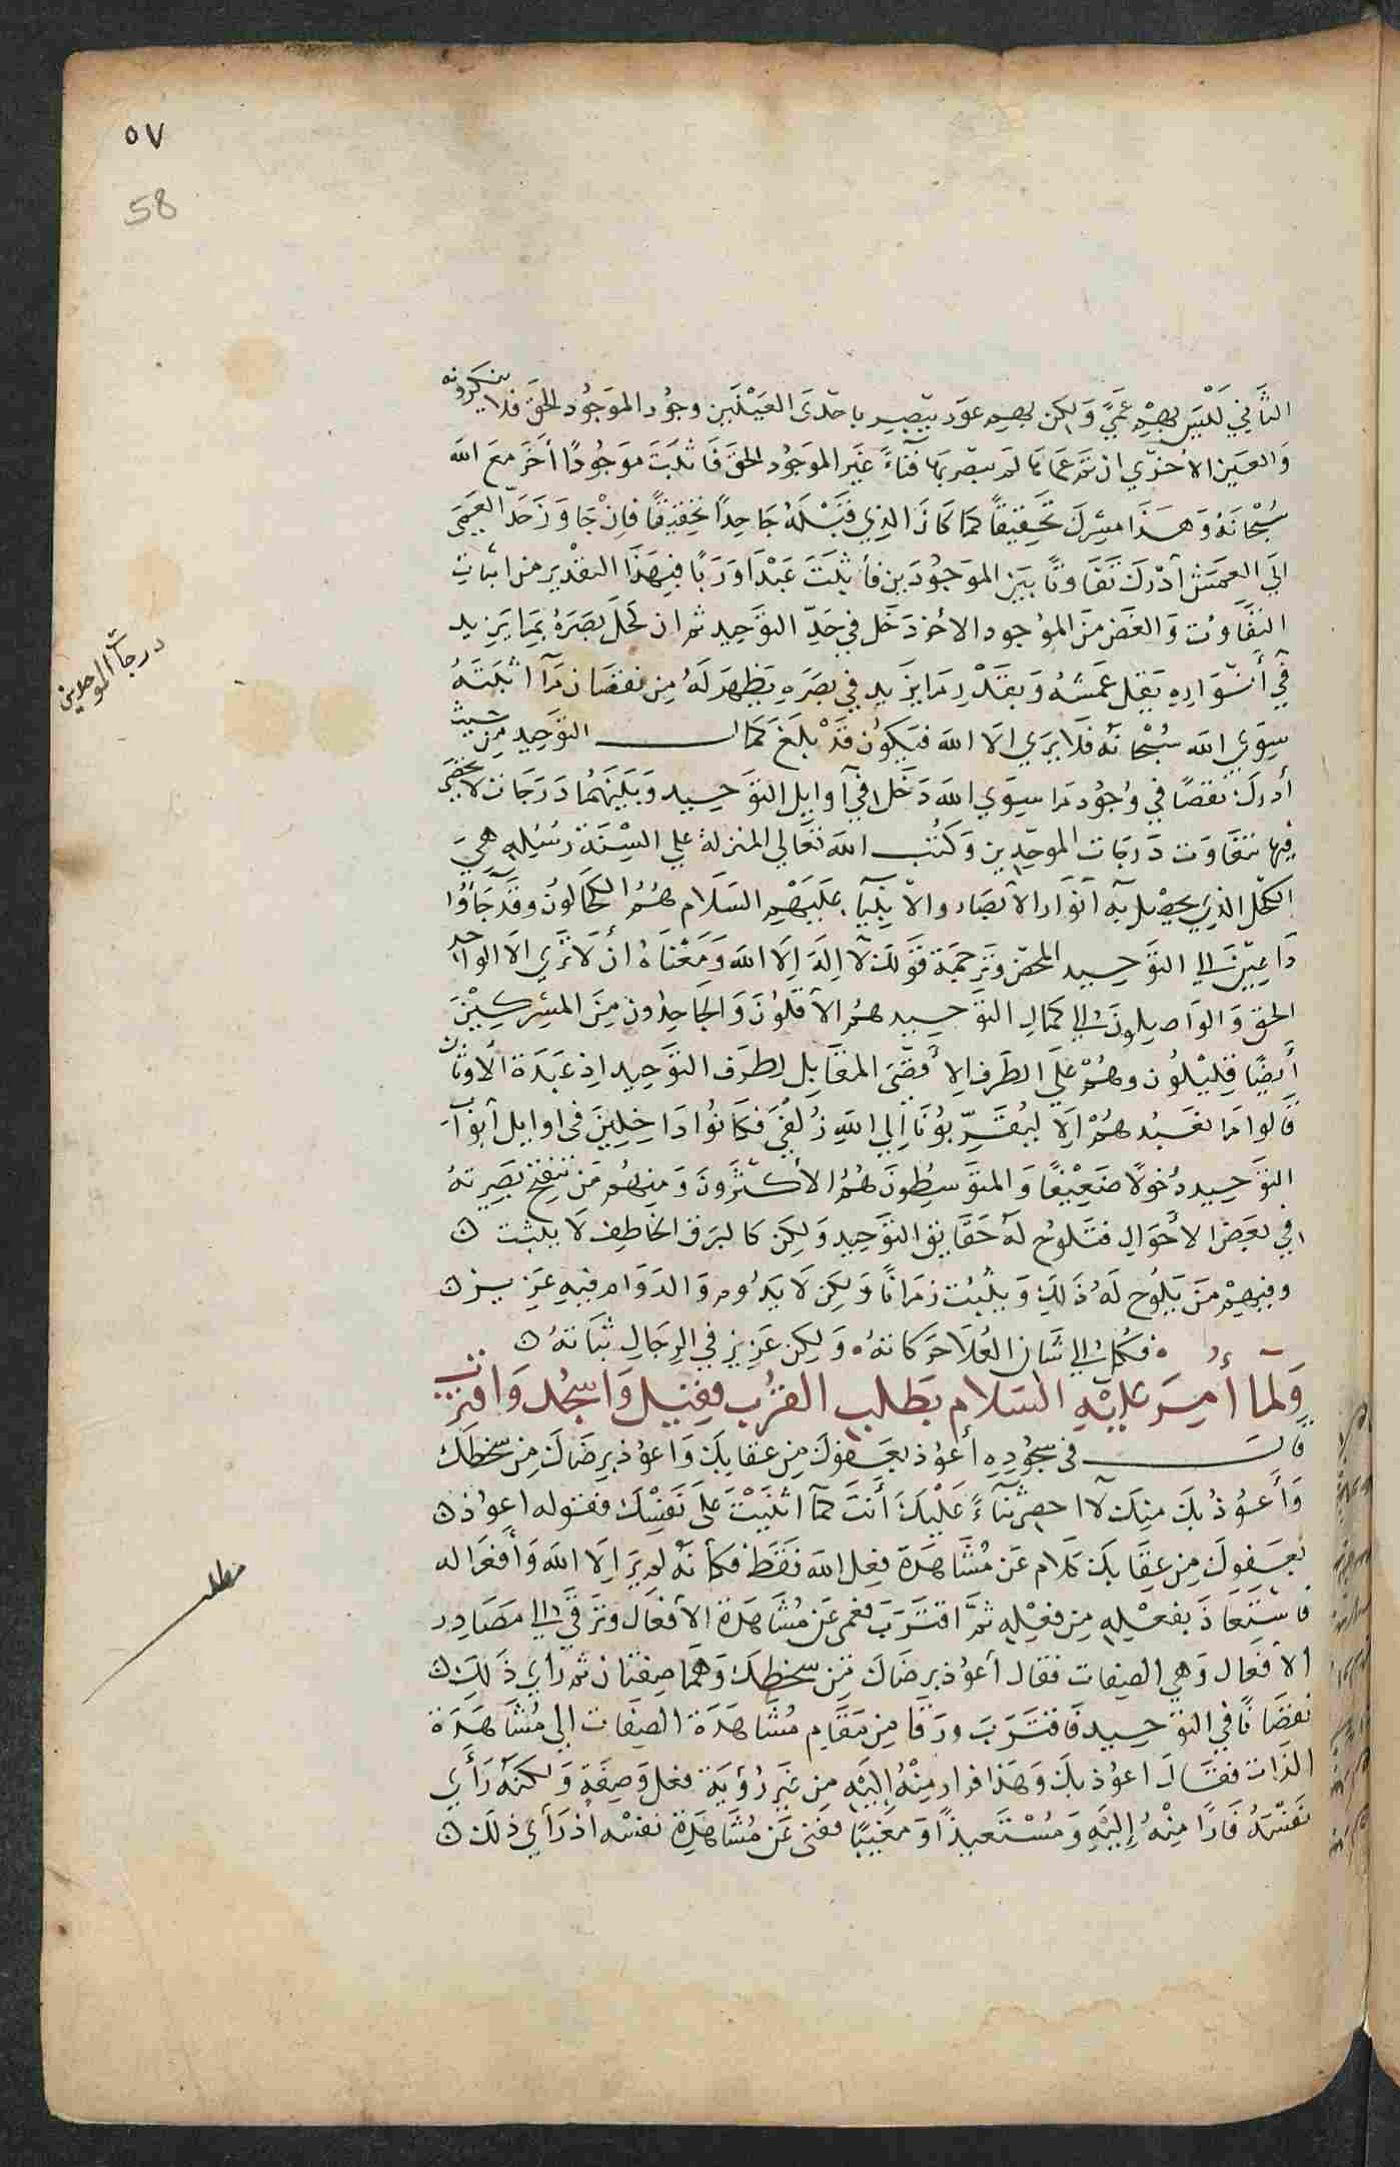 ٥٧
58
الثاني لَيْسَ بهم عَمىً وَلكن بهم عور تبصر باحدى العينين وجود الموجود الحق فلا ينكرونه
والعين الأخري ان تم عماها لم يبصر بها فناءً غير الموجود الحق فاثبت موجودًا أخر مع الله
سُبْحانه وهذا مشرك تحقيقًا كما كان الذي قبله جاحدًا تحقيقًا فان جاوز حدّ العمى
الي العمش أدرك تفاوتًا بين الموجودين فأثبت عبدًا وربًا فبهذا القدر من اثبات
التفاوت والنقص من الموجود الاخر دخل في حدّ التوحيد ثم ان كحل بصره بما يزيد
في أنواره يقل عمشه وبقدر ما يزيد في بصره يظهر له من نقصان ما اثبته
سوي الله سُبْحانه فلا يري الا الله فيكون قد بلغ كمال التوحيد من حيث
أدرك نقصًا في وجود ما سوي الله دخل في أوايل التوحيد وبينهما درجات لا تحصى
فيها تتفاوت درجات الموحدين وكتب الله تعالي المنزلة علي السنة رسله هي
الكحل الذي يحصل به أنوار الأبصار والأنبيا عليهم السلام هم الكحالون وقد جاؤا
داعين الي التوحيد المحض وترجمة قولك لا اله الا الله ومعناه أن لا تري الا الواحد
الحق والواصلون الي كمال التوحيد هم الاقلون والجاحدون من المشركين
أيضًا قليلون وهم علي الطرف الأقصى المقابل لطرف التوحيد اذ عبدة الأوثان
قالوا ما نعبدهم الا ليقربونا إلي الله زلفي فكانوا داخلين في اوايل أبواب
التوحيد دخولًا ضعيفًا والمتوسطون هم الأكثرون ومنهم من تنفتح بصيرته
في بعض الأحوال فتلوح له حقايق التوحيد ولكن كالبرق الخاطف لا يثبت
وفيهم من يلوح له ذلك ويثبت زمانًا ولكن لا يدوم والدوام فيه عزيز
فكل الي شان العُلا حركاته ولكن عزيز في الرجال ثباته
ولما أُمر عليه السلام بطلب القرب فقيل واسجد واقترب
قال في سجوده أعوذ بعفوك من عقابك واعوذ برضاك من سخطك
وأعوذ بك منك لا احصي ثناءً عليك أنت كما اثنيت على نفسك فقوله اعوذ
بعفوك من عقابك كلام عن مشاهدة فعل الله فقط فكأنه لم ير الا الله وأفعاله
فاستعاذ بفعله من فعله ثم اقترب فعمى عن مشاهدة الأفعال وترقي الي مصادر
الأفعال وهي الصفات فقال أعوذ برضاك من سخطك وهما صفتان ثم رأي ذلك
نقصانًا في التوحيد فاقترب ورقا من مقام مشاهدة الصفات إلي مشاهدة
الذات فقال اعوذ بك وهذا فرار منه إليه من غير رؤية فعل وصفة ولكنه رأي
نفسه فارًا منه إليه ومستعيذًا ففنى عن مشاهدة نفسه اذ رأي ذلك
درجات الموحدين
مطلب